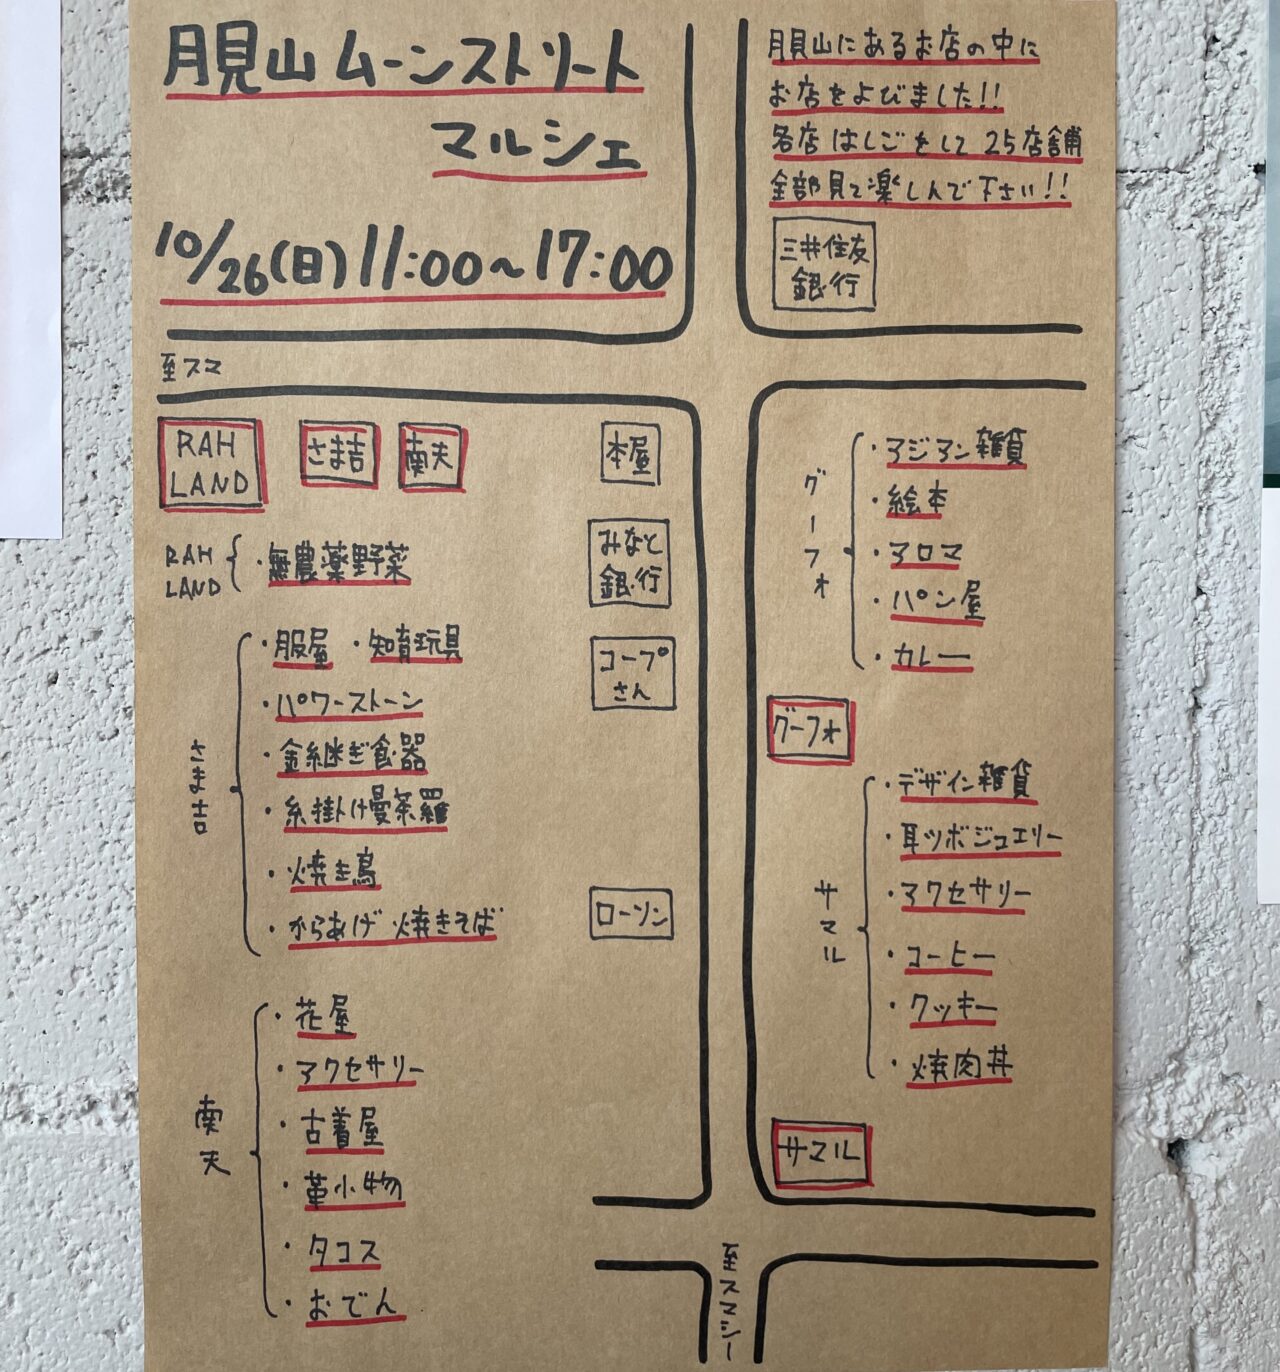 月見山ムーンストリート
マルシェ
10/26(日)11:00~17:00
月見山にあるお店の中に
お店をよびました!!
各店はしごをして25店舗
全部見て楽しんで下さい!!
三井住友
銀行
至スマ
RAH
LAND
さま吉
南天
本屋
みなと
銀行
コープ
さん
ローソン
RAH
LAND
・無農薬野菜
さま吉
・服屋 ・知育玩具
・パワーストーン
・金継ぎ食器
・糸掛け曼荼羅
・焼き鳥
・からあげ 焼きそば
南天
・花屋
・アクセサリー
・古着屋
・革小物
・タコス
・おでん
グーフォ
・アジアン雑貨
・絵本
・アロマ
・パン屋
・カレー
グーフォ
サマル
・デザイン雑貨
・耳ツボジュエリー
・アクセサリー
・コーヒー
・クッキー
・焼肉丼
サマル
至スマシー